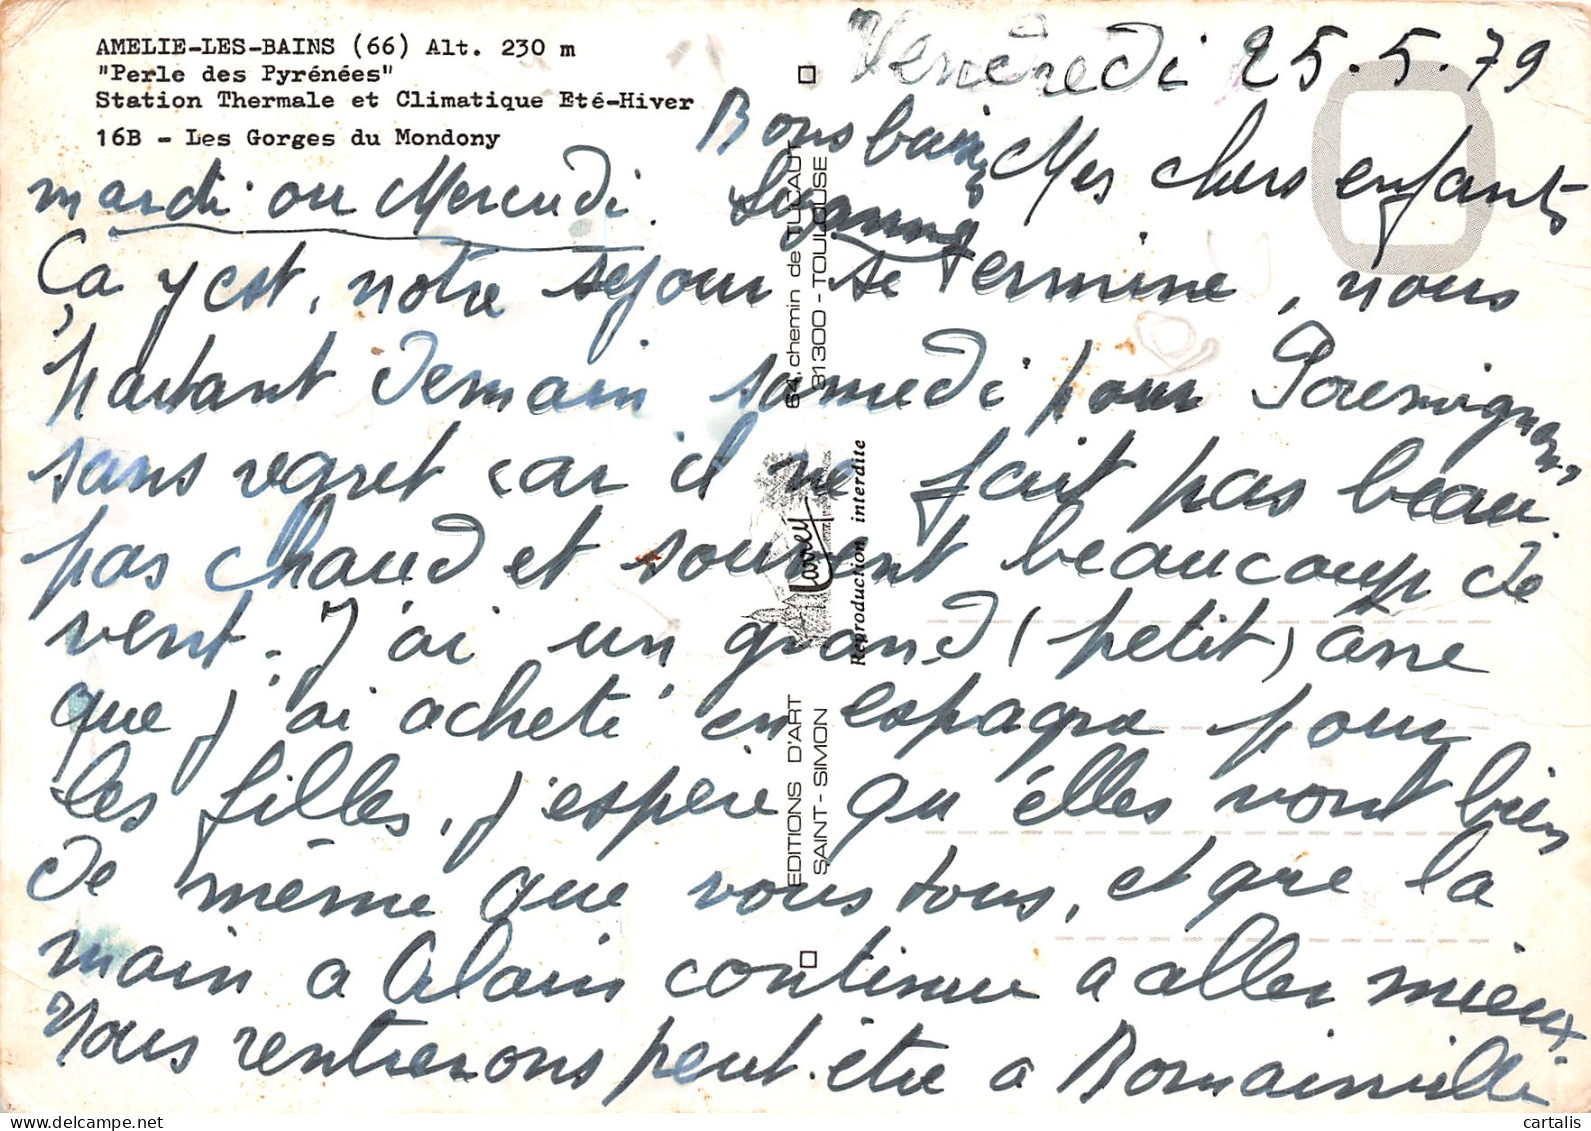 AMELIE-LES-BAINS (66) Alt. 230 m
"Perle des Pyrénées"
Station Thermale et Climatique Eté-Hiver
16B - Les Gorges du Mondony
Vendredi 25.5.79
Mes chers enfants
Ça y est, notre séjour se termine, nous
partant demain samedi pour
sans regret car il ne fait pas beau
pas chaud et souvent beaucoup de
vent. J'ai un grand (petit) âne
que j'ai acheté en espagne pour
les filles, j'espère qu'elles vont bien
de même que vous tous, et que la
main a Alain continue a aller mieux.
Nous rentrerons peut-être a Romainville
mardi ou Mercredi.
Bons baisers
Suzanne
64, chemin de TUCAUT
31300 - TOULOUSE
Larrey
Reproduction interdite
EDITIONS D'ART
SAINT-SIMON
cartalis